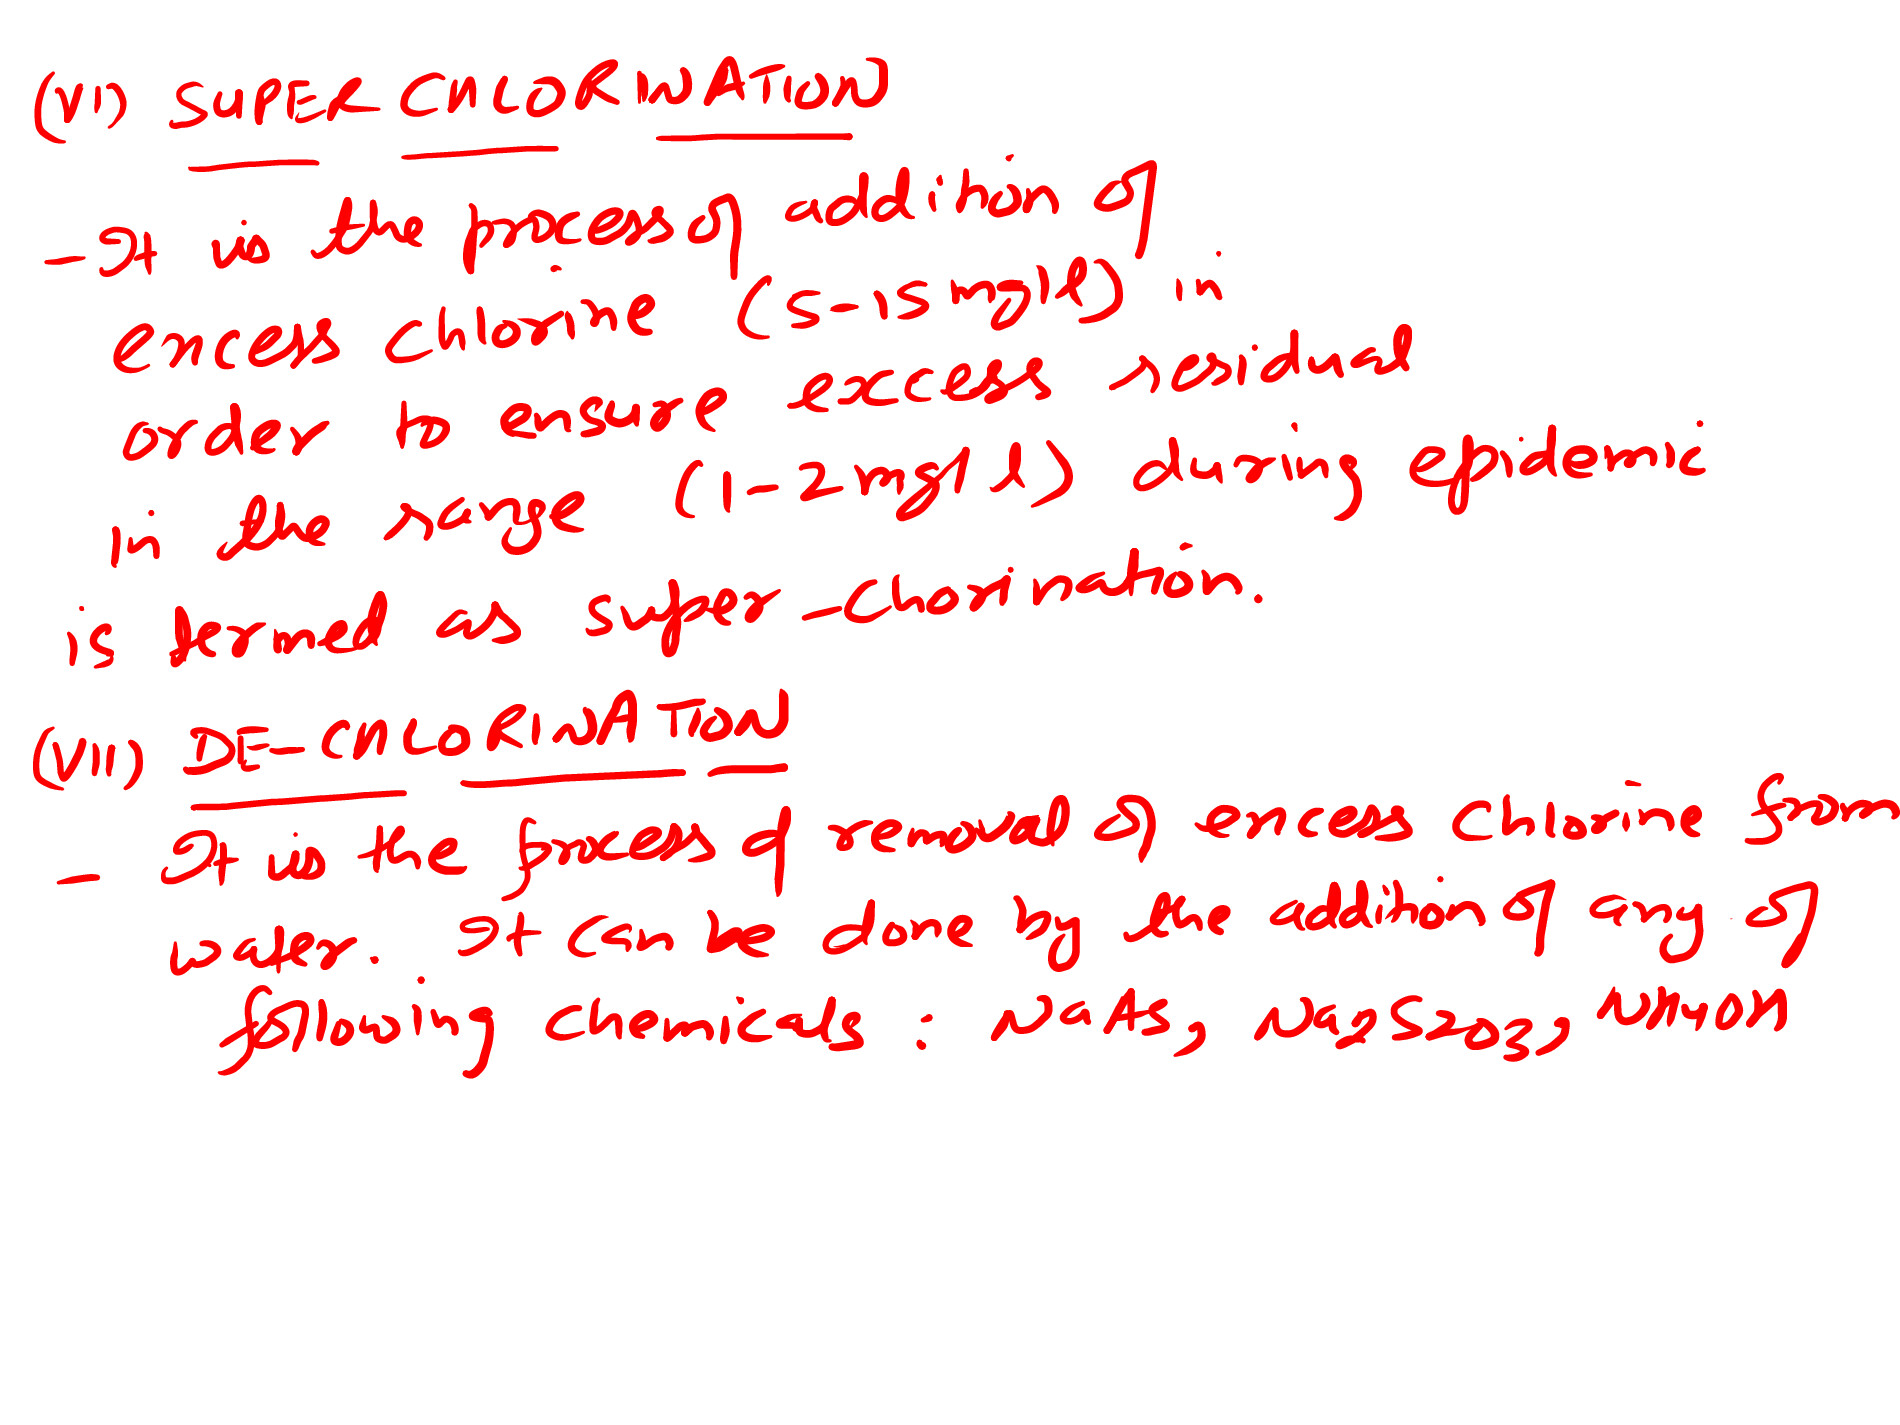 (VI) SUPER CHLORINATION
- It is the process of addition of
excess chlorine (5-15 mg/l) in
order to ensure excess residual
in the range (1-2 mg/l) during epidemic
is termed as super-chorination.
(VII) DE-CHLORINATION
- It is the process of removal of excess chlorine from
water. It can be done by the addition of any of
following chemicals : NaAs, Na2S2O3, NH4OH